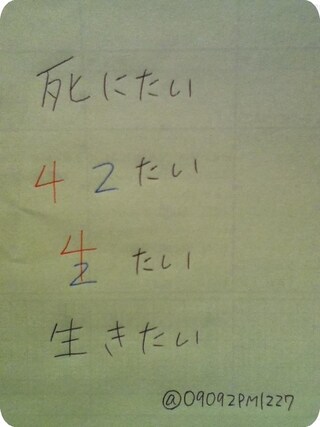 死にたい
42たい
42 たい
生きたい
@09092PM1227